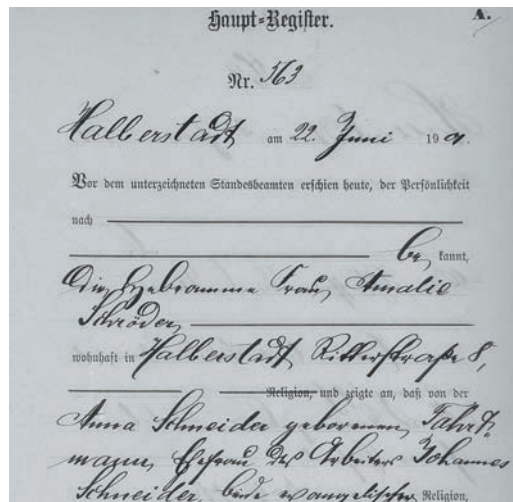 A.
Haupt-Register.
Nr. 563
Halberstadt am 22. Juni 19 01.
Vor dem unterzeichneten Standesbeamten erschien heute, der Persönlichkeit
nach
be kannt,
die Hebeamme Frau Amalie
Schröder
wohnhaft in Halberstadt, Ritterstraße 8,
Religion, und zeigte an, daß von der
Anna Schneider geborenen Fahrt-
mann, Ehefrau des Arbeiters Johannes
Schneider, beide evangelischer Religion,